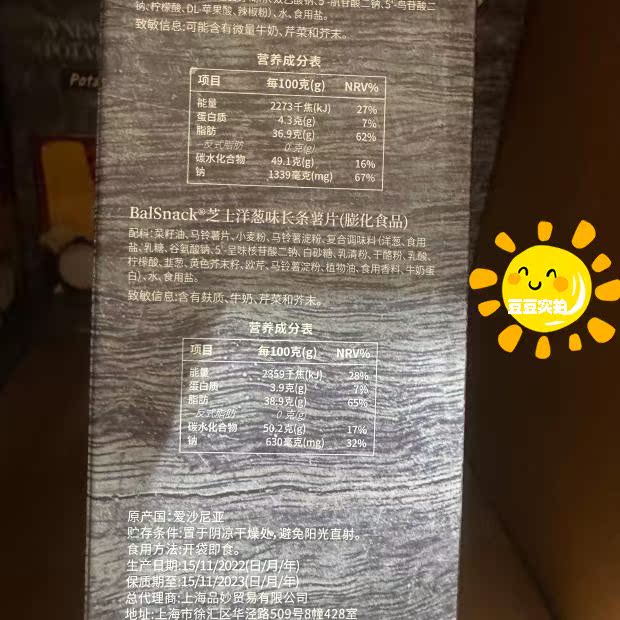 钠、柠檬酸、DL-苹果酸、辣椒粉)、水、食用盐。
致敏信息:可能含有微量牛奶、芹菜和芥末。
Pota
营养成分表
项目 每100克(g) NRV%
能量 2273千焦(kJ) 27%
蛋白质 4.3克(g) 7%
脂肪 36.9克(g) 62%
-反式脂肪 0克(g)
碳水化合物 49.1克(g) 16%
钠 1339毫克(mg) 67%
BalSnack®芝士洋葱味长条薯片(膨化食品)
配料:菜籽油、马铃薯片、小麦粉、马铃薯淀粉、复合调味料(洋葱、食用
盐、乳糖、谷氨酸钠、5'-呈味核苷酸二钠、白砂糖、乳清粉、干酪粉、乳酸、
柠檬酸、韭葱、黄色芥末籽、欧芹、马铃薯淀粉、植物油、食用香料、牛奶蛋
白)、水、食用盐。
致敏信息:含有麸质、牛奶、芹菜和芥末。
豆豆实拍
营养成分表
项目 每100克(g) NRV%
能量 2359千焦(kJ) 28%
蛋白质 3.9克(g) 7%
脂肪 38.9克(g) 65%
-反式脂肪 0克(g)
碳水化合物 50.2克(g) 17%
钠 630毫克(mg) 32%
原产国:爱沙尼亚
贮存条件:置于阴凉干燥处,避免阳光直射。
食用方法:开袋即食。
生产日期:15/11/2022(日/月/年)
保质期至:15/11/2023(日/月/年)
总代理商:上海品妙贸易有限公司
地址:上海市徐汇区华泾路509号8幢428室